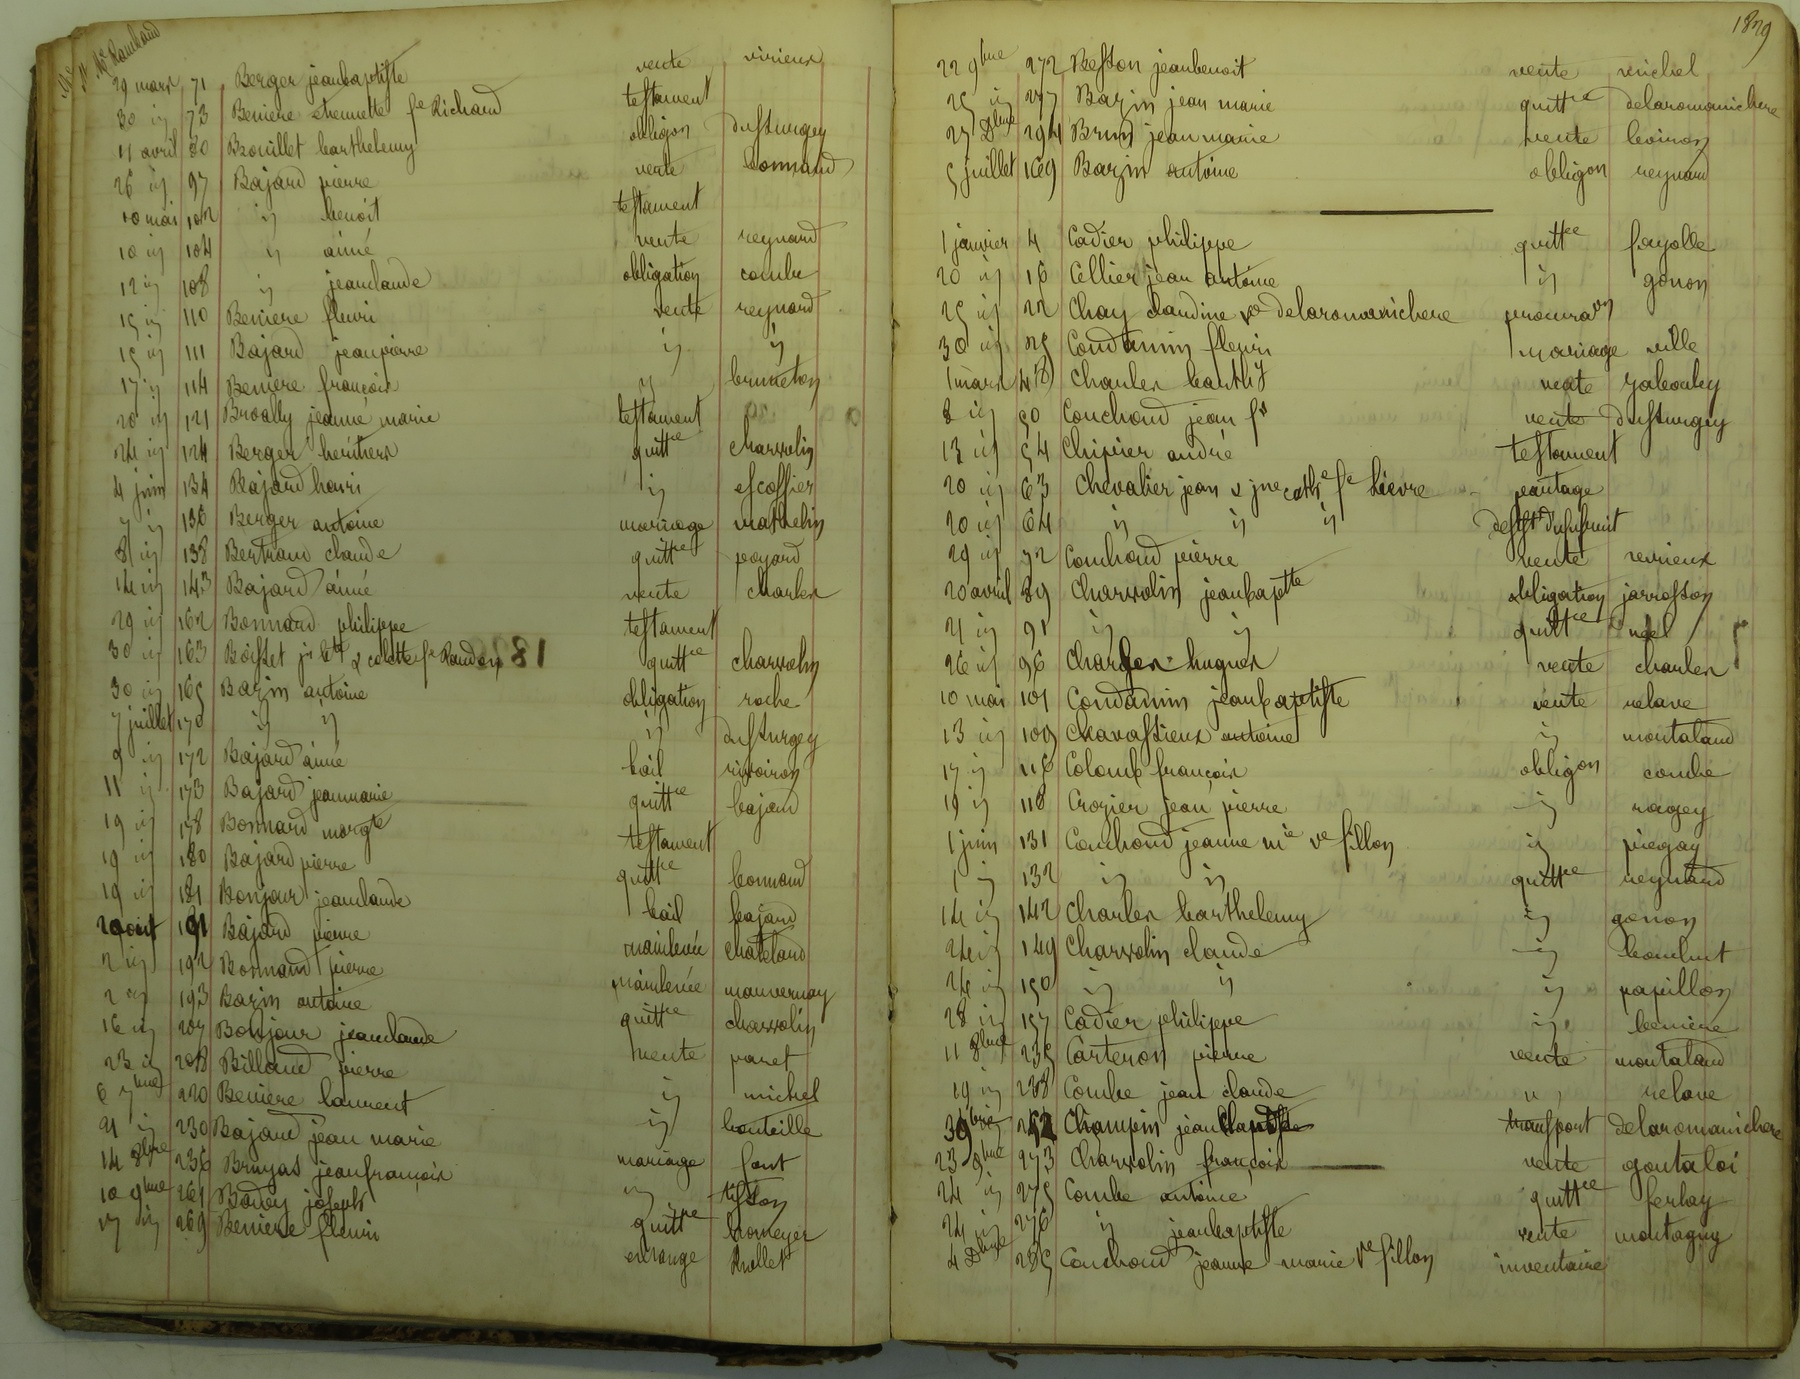 Mc Rambaud
29 mars 71 Berger jeanbaptiste vente virieux
30 id 73 Beniere etiennette fe Richard testament
11 avril 80 Brouillet barthelemy obligon dussurgey
26 id 97 Bajard pierre vente bonnard
10 mai 102 id benoit testament
10 id 104 id aimé vente reynard
12 id 108 id jeanclaude obligation combe
15 id 110 Beniere fleuri vente reynard
15 id 111 Bajard jeanpierre id id
17 id 114 Beniere françois id bruneton
20 id 121 Broally jeanne marie testament
24 id 124 Berger heritiers quittce charvolin
4 juin 134 Bajard henri id escoffier
7 id 136 Berger antoine mariage mathelin
8 id 138 Bertrand claude quittce poyard
14 id 143 Bajard aimé vente charles
29 id 162 Bonnard philippe testament
30 id 163 Boisset & colette fe quittce charvolin
30 id 165 Bazin antoine obligation roche
7 juillet 170 id id id dussurgey
9 id 172 Bajard aimé bail rivoiron
11 id 173 Bajard jeanmarie quittce bajard
19 id 178 Bonnard margte testament
19 id 180 Bajard pierre quittce bonnard
19 id 181 Bonjour jeanclaude bail bajard
2 aout 191 Bajard pierre mainlevée chatelard
2 id 192 Bonnard pierre mainlevée mauvernay
2 id 193 Bazin antoine quittce charvolin
16 id 207 Bonjour jeanclaude vente paret
23 id 208 Billaud pierre id michel
6 7bre 220 Beniere laurent id bouteille
21 id 230 Bajard jean marie mariage font
14 8bre 236 Bruyas jeanfrançois id tisson
10 9bre 261 Bodoy joseph quittce bomeyer
17 id 269 Beniere fleuri echange Rollet
1829
22 9bre 272 Besson jeanbenoit vente michel
25 id 277 Bazin jean marie quittce delaromanichere
27 Dbre 294 Brun jean marie vente boiron
5 juillet 169 Bazin antoine obligon reynard
1 janvier 4 Cadier philippe quittce fayolle
20 id 16 Cellier jean antoine id gonon
25 id 22 Chay claudine ve delaromanichere procuraon
30 id 25 Condamin fleuri mariage ville
1 mars 48 Charles barthy vente
8 id 50 Couchoud jean fs vente dussurgey
13 id 54 Chipier andré testament
20 id 63 Chevalier jean & jne cathe fe Lievre partage
20 id 64 id id id
29 id 72 Couchoud pierre vente
20 avril 89 Charvolin jeanbaptte obligation jarrosson
21 id 91 id id quittce noel
26 id 96 Charles hugues vente charles
10 mai 101 Condamin jeanbaptiste vente relave
13 id 109 Chavassieux antoine id montaland
17 id 116 Colomb françois obligon combe
19 id 118 Crozier jean pierre id ragey
1 juin 131 Couchoud jeanne mie ve fillon id piegay
1 id 132 id id quittce reynaud
14 id 142 Charles barthelemy id gonon
24 id 149 Charvolin claude id
24 id 150 id id id papillon
28 id 157 Cadier philippe id beniere
11 8bre 235 Carteron pierre vente montaland
19 id 238 Combe jean claude id relave
3 9bre 252 Champin jeanbaptiste transport delaromanichere
23 9bre 273 Charvolin françois vente goutaloi
24 id 275 Combe antoine quittce ferlay
24 id 276 id jeanbaptiste vente montagny
4 Dbre 285 Couchoud jeanne marie ve fillon inventaire